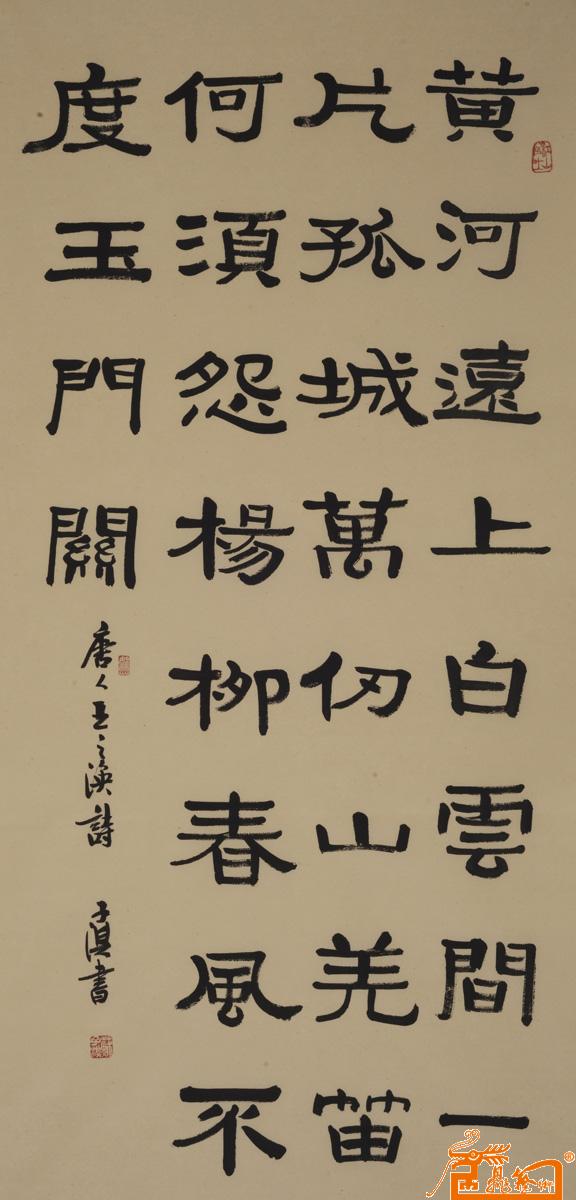 黄河遠上白雲間一
片孤城萬仞山羌笛
何須怨楊柳春風不
度玉門關
唐人王之渙詩
子 書